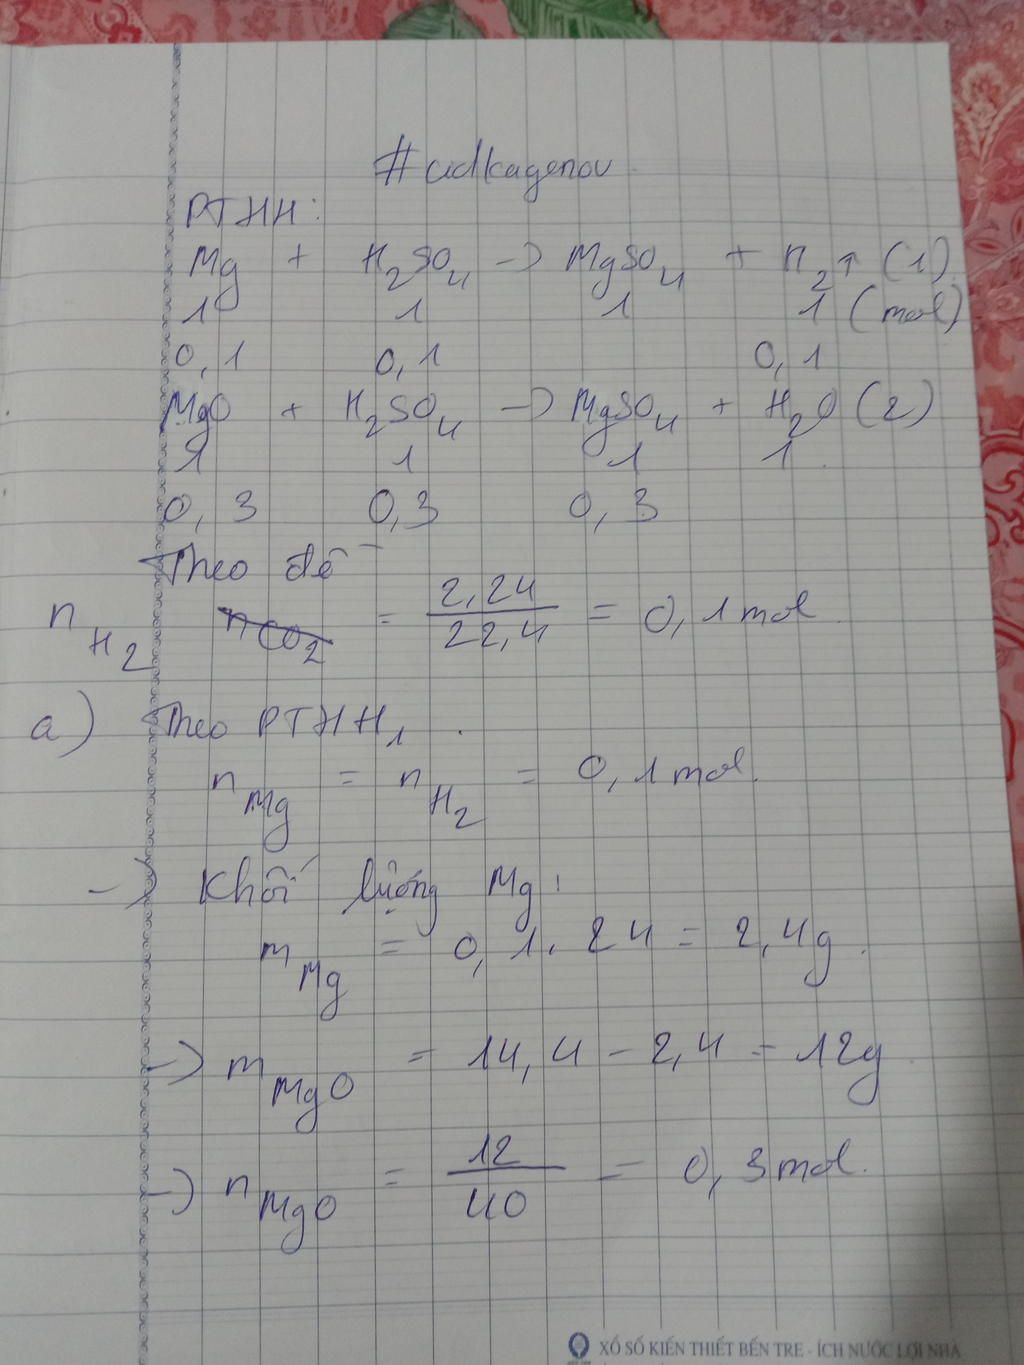 #adkagenou
PTHH:
Mg + H₂SO₄ -> MgSO₄ + H₂↑ (1)
1 1 1 1 (mol)
0,1 0,1 0,1
MgO + H₂SO₄ -> MgSO₄ + H₂O (2)
1 1 1 1
0,3 0,3 0,3
Theo đề
n H₂ nCO₂ = 2,24/22,4 = 0,1 mol
a) Theo PTHH₁
n Mg = n H₂ = 0,1 mol.
-> Khối lượng Mg:
m Mg = 0,1. 24 = 2,4g.
-> m MgO = 14,4 - 2,4 = 12g
-> n MgO = 12/40 = 0,3 mol.
XỔ SỐ KIẾN THIẾT BẾN TRE - ÍCH NƯỚC LỢI NHÀ